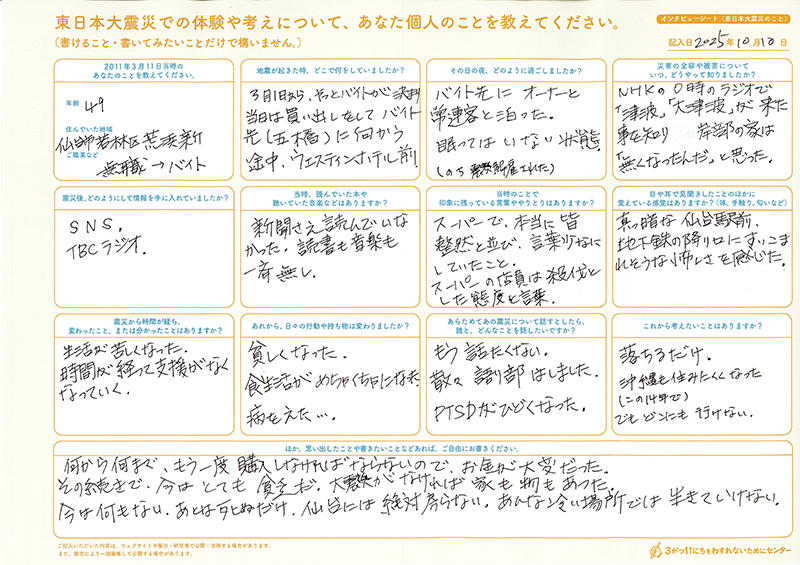 東日本大震災での体験や考えについて、あなた個人のことを教えてください。
(書けること・書いてみたいことだけで構いません。)
インタビューシート（東日本大震災のこと）
記入日 2025年10月10日
2011年3月11日当時の
あなたのことを教えてください。
年齢 49
住んでいた地域
仙台市若林区荒浜新
ご職業など
無職→バイト
地震が起きた時、どこで何をしていましたか？
3月1日から、やっとバイトが決まり
当日は買い出しをしてバイト
先(五橋)に向かう
途中、ウェスティンホテル前
その日の夜、どのように過ごしましたか？
バイト先にオーナーと
常連客と泊った。
眠ってはいない状態。
(のち解雇された)
災害の全容や被害について
いつ、どうやって知りましたか？
NHKの0時のラジオで
「津波」「大津波」が来た
事を知り 岸部の家は
「無くなったんだ」と思った。
震災後、どのようにして情報を手に入れていましたか？
SNS。
TBCラジオ。
当時、読んでいた本や
聴いていた音楽などはありますか？
新聞さえ読んでいな
かった。読書も音楽も
一斉無し。
当時のことで
印象に残っている言葉ややりとりはありますか？
スーパーで、本当に皆
整然と並び、言葉少なに
していたこと。
スーパーの店員は殺伐と
した態度と言葉。
目や耳で見聞きしたことのほかに
覚えている感覚はありますか？（味、手触り、匂いなど）
真っ暗な仙台駅前、
地下鉄の降り口にすいこま
れそうな怖しさを感じた。
震災から時間が経ち、
変わったこと、または分かったことはありますか？
生活が苦しくなった。
時間が経って支援がなく
なっていく。
あれから、日々の行動や持ち物は変わりましたか？
貧しくなった。
食生活がめちゃくちゃになった。
病をえた…。
あらためてあの震災について話すとしたら、
誰と、どんなことを話したいですか？
もう話たくない。
散々語り部はしました。
PTSDがひどくなった。
これから考えたいことはありますか？
落ちるだけ。
沖縄も住みにくくなった
(この14年で)
でもどこにも行けない。
ほか、思い出したことや書きたいことなどあれば、ご自由にお書きください。
何から何まで、もう一度購入しなければならないので、お金が大変だった。
その続きで、今はとても貧乏だ。大震災がなければ家も物もあった。
今は何もない。あとは死ぬだけ。仙台には絶対戻らない。あんな冷い場所では生きていけない。
ご記入いただいた内容は、ウェブサイトや展示・研究等で公開・活用する場合があります。
また、都合により一部編集して公開する場合があります。
3がつ11にちをわすれないためにセンター